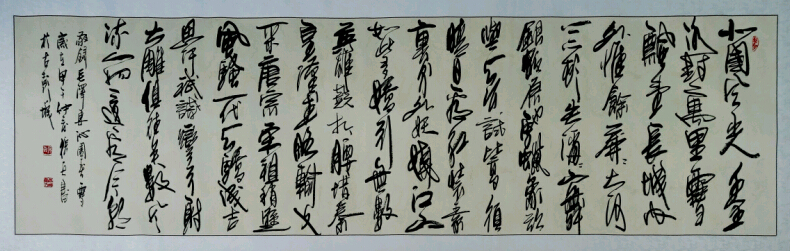 北國風光千里
冰封萬里雪
飄望長城内
外惟餘莽莽大河
上下頓失滔滔山舞
銀蛇原馳蠟象欲
與天公試比高須
晴日看紅裝素
裹分外妖嬈江山
如此多嬌引無數
英雄競折腰惜秦
皇漢武略輸文
采唐宗宋祖稍遜
風騷一代天驕成吉
思汗祇識彎弓射
大雕俱往矣數風
流人物還看今朝
敬錄毛澤東沁園春雪
歲在甲午仲
於古彭城